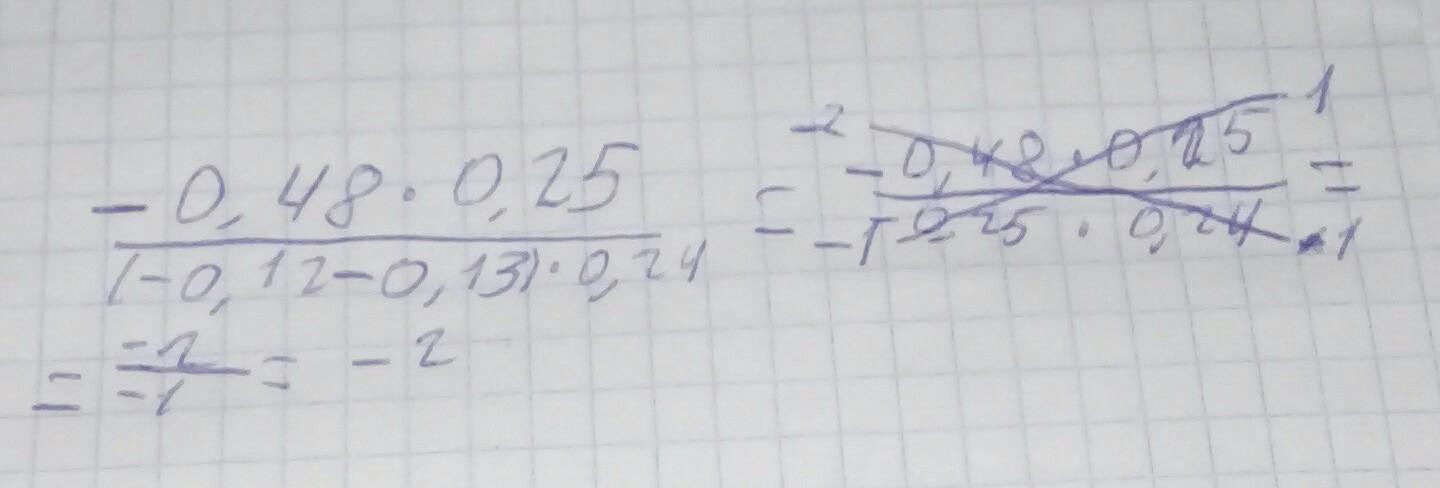 -0,48·0,25/(-0,12-0,13)·0,24 = -2 -0,48·0,25 1/-1 -0,25·0,24 1 =
= -2/-1 = -2